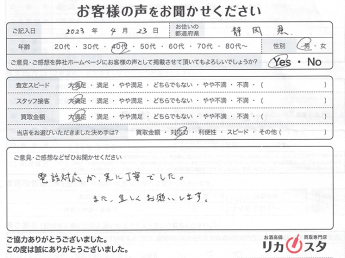 お客様の声をお聞かせください
ご記入日 2023 年 4 月 23 日 お住いの都道府県 静岡 県
年齢 20代 ・ 30代 ・ 40代 ・ 50代 ・ 60代 ・ 70代 ・ 80代〜 性別 男 ・ 女
ご意見・ご感想を弊社ホームページにお客様の声として掲載させて頂いてもよろしいでしょうか? Yes ・ No
査定スピード 大満足 ・ 満足 ・ やや満足 ・ どちらでもない ・ やや不満 ・ 不満 ・ ( )
スタッフ接客 大満足 ・ 満足 ・ やや満足 ・ どちらでもない ・ やや不満 ・ 不満 ・ ( )
買取金額 大満足 ・ 満足 ・ やや満足 ・ どちらでもない ・ やや不満 ・ 不満 ・ ( )
当店をお選びいただきました決め手は? 買取金額 ・ 対応 ・ 利便性 ・ スピード ・ その他 ( )
ご意見・ご感想などぜひお聞かせください
電話対応が、 丁寧でした。
また、宜しくお願いします。
ご協力ありがとうございました。
この度は誠にありがとうございました。
お酒高価 買取専門店
リカスタ